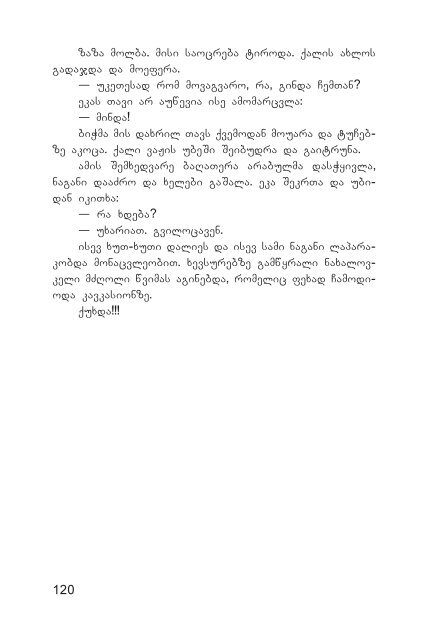 ზაზა მოლბა. მისი საოცრება ტიროდა. ქალის ახლოს
გადაჯდა და მოეფერა.
— უკეთესად რომ მოვაგვარო, რა, გინდა ჩემთან?
ეკას თავი არ აუწევია ისე ამომარცვლა:
— მინდა!
ბიჭმა მის დახრილ თავს ქვემოდან მოუარა და ტუჩებ-
ზე აკოცა. ქალი ვაჟის უბეში შეიბუდრა და გაიტრუნა.
ამის შემხედვარე ბაღათერა არაბულმა დასჭყივლა,
ნაგანი დააძრო და ხელები გაშალა. ეკა შეკრთა და უბი-
დან იკითხა:
— რა ხდება?
— უხარიათ. გვილოცავენ.
ისევ ხუთ-ხუთი დალიეს და ისევ სამი ნაგანი ლაპარა-
კობდა მონაცვლეობით. ხევსურებზე გამწყრალი ნახალოვ-
კელი მძღოლი წვიმას აგინებდა, რომელიც ფეხად ჩამოდი-
ოდა კავკასიონზე.
ქუხდა!!!
120